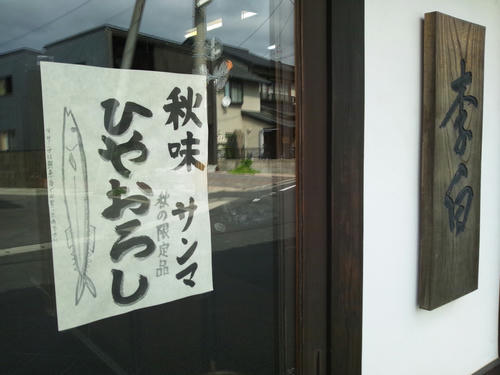 秋味 サンマ
秋の限定品
ひやおろし
李白